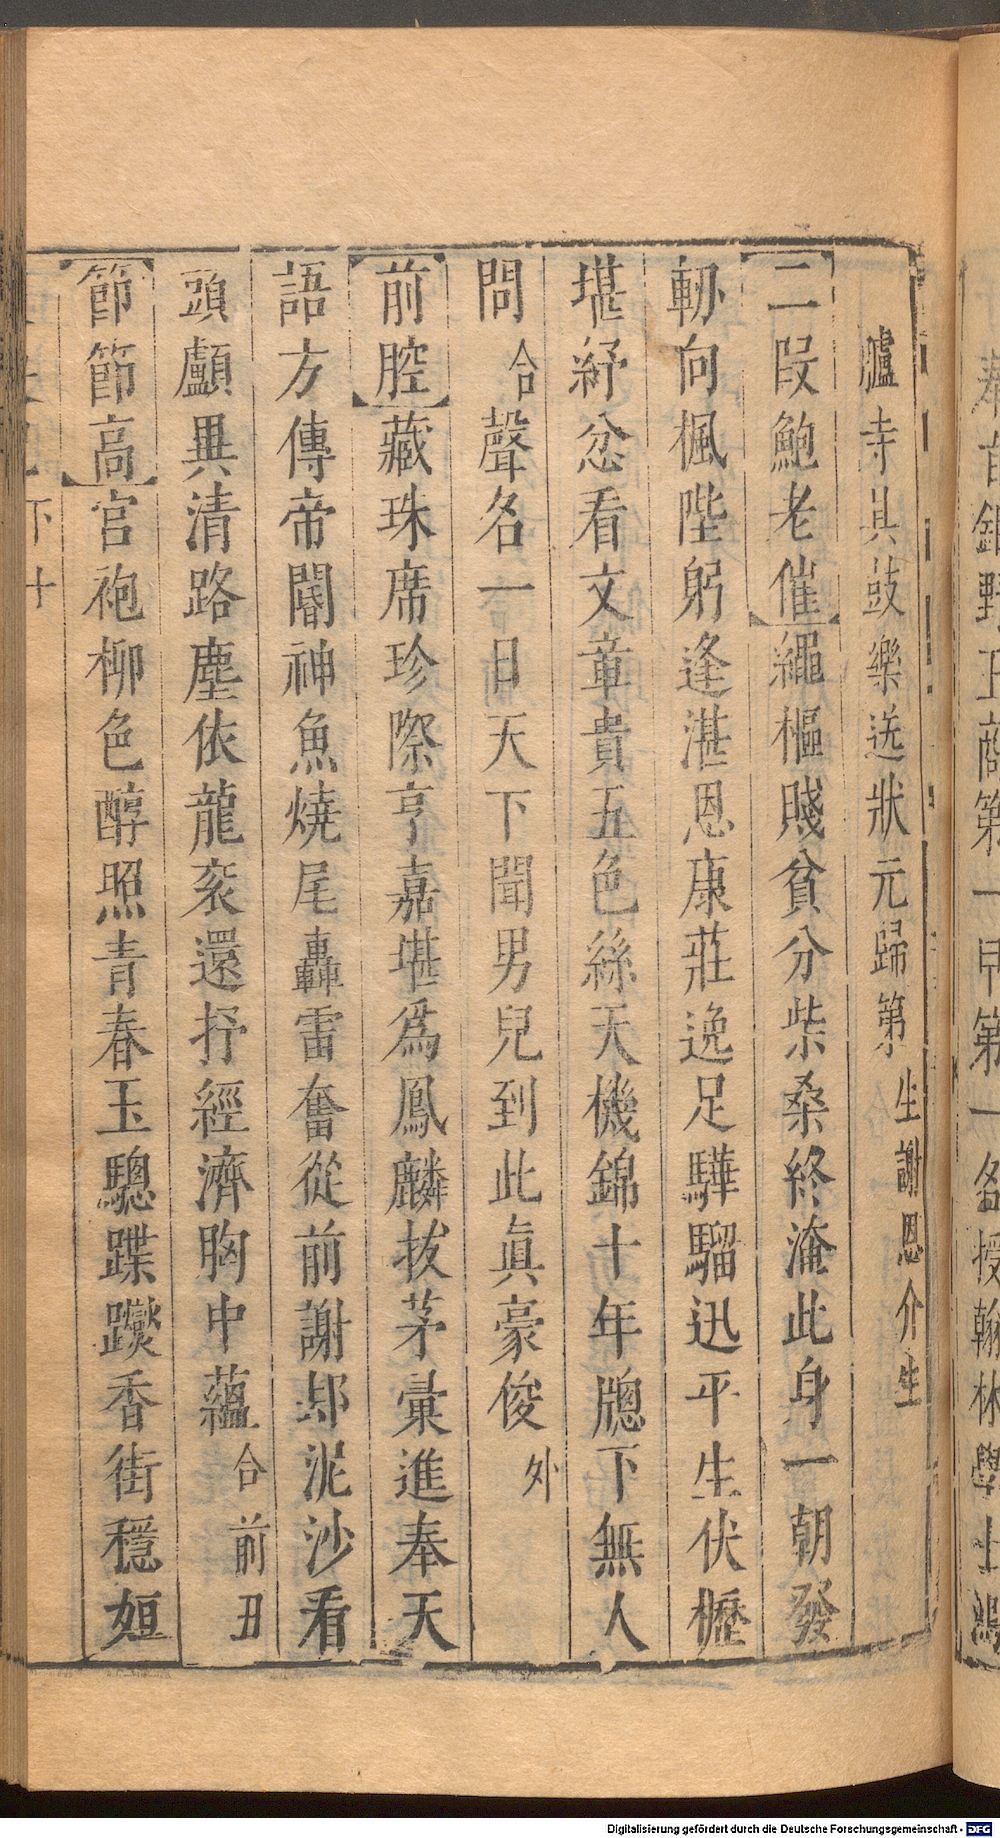 臚寺具鼓樂送狀元歸第 生謝恩介生
二段鮑老催 繩樞賤貧分柴桑終淹此身一朝發
軔向楓陛躬逢湛恩康莊逸足驊騮迅平生伏櫪
堪紓忿看文章貴五色絲天機錦十年牕下無人
問 合 聲名一日天下聞男兒到此眞豪俊 外
前腔 藏珠席珍際亨嘉堪爲鳳麟拔茅彙進奉天
語方傳帝閽神魚燒尾轟雷奮從前謝却泥沙看
頭顱異清路塵依龍衮還抒經濟胸中蘊 合前丑
節節高 宫袍柳色醇照青春玉驄蹀躞香街穩姮
下 十
第一甲第一名授翰林學士
Digitalisierung gefördert durch die Deutsche Forschungsgemeinschaft - DFG